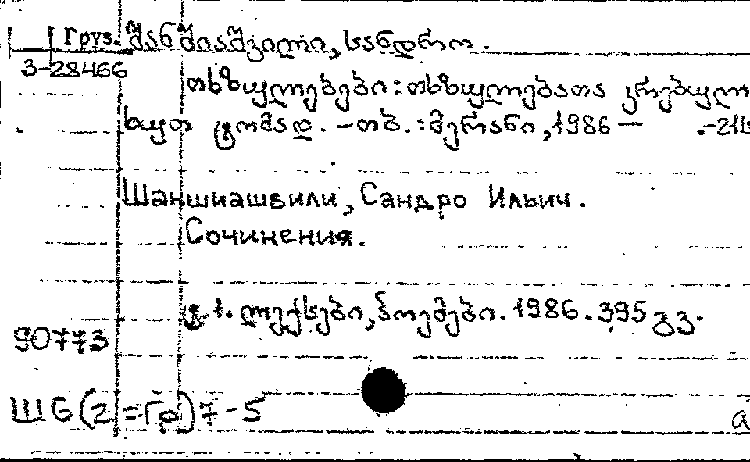 Груз. შანშიაშვილი, სანდრო.
3-28466
თხზულებები: თხზულებათა კრებული
ხუთ ტომად. – თბ.: მერანი, 1986 – .-21
Шаншиашвили, Сандро Ильич.
Сочинения.
ტ.1. ლექსები, პოემები. 1986. 395 გვ.
90773
Ш6(2=Гр)7-5